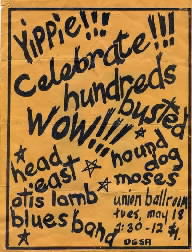 Yippie!!!
Celebrate!!!
hundreds
busted
WOW!!!!
head
east
hound
dog
otis lamb
moses
blues band
union ballroom
tues, may 18
7:30-12 $1.
OGSA